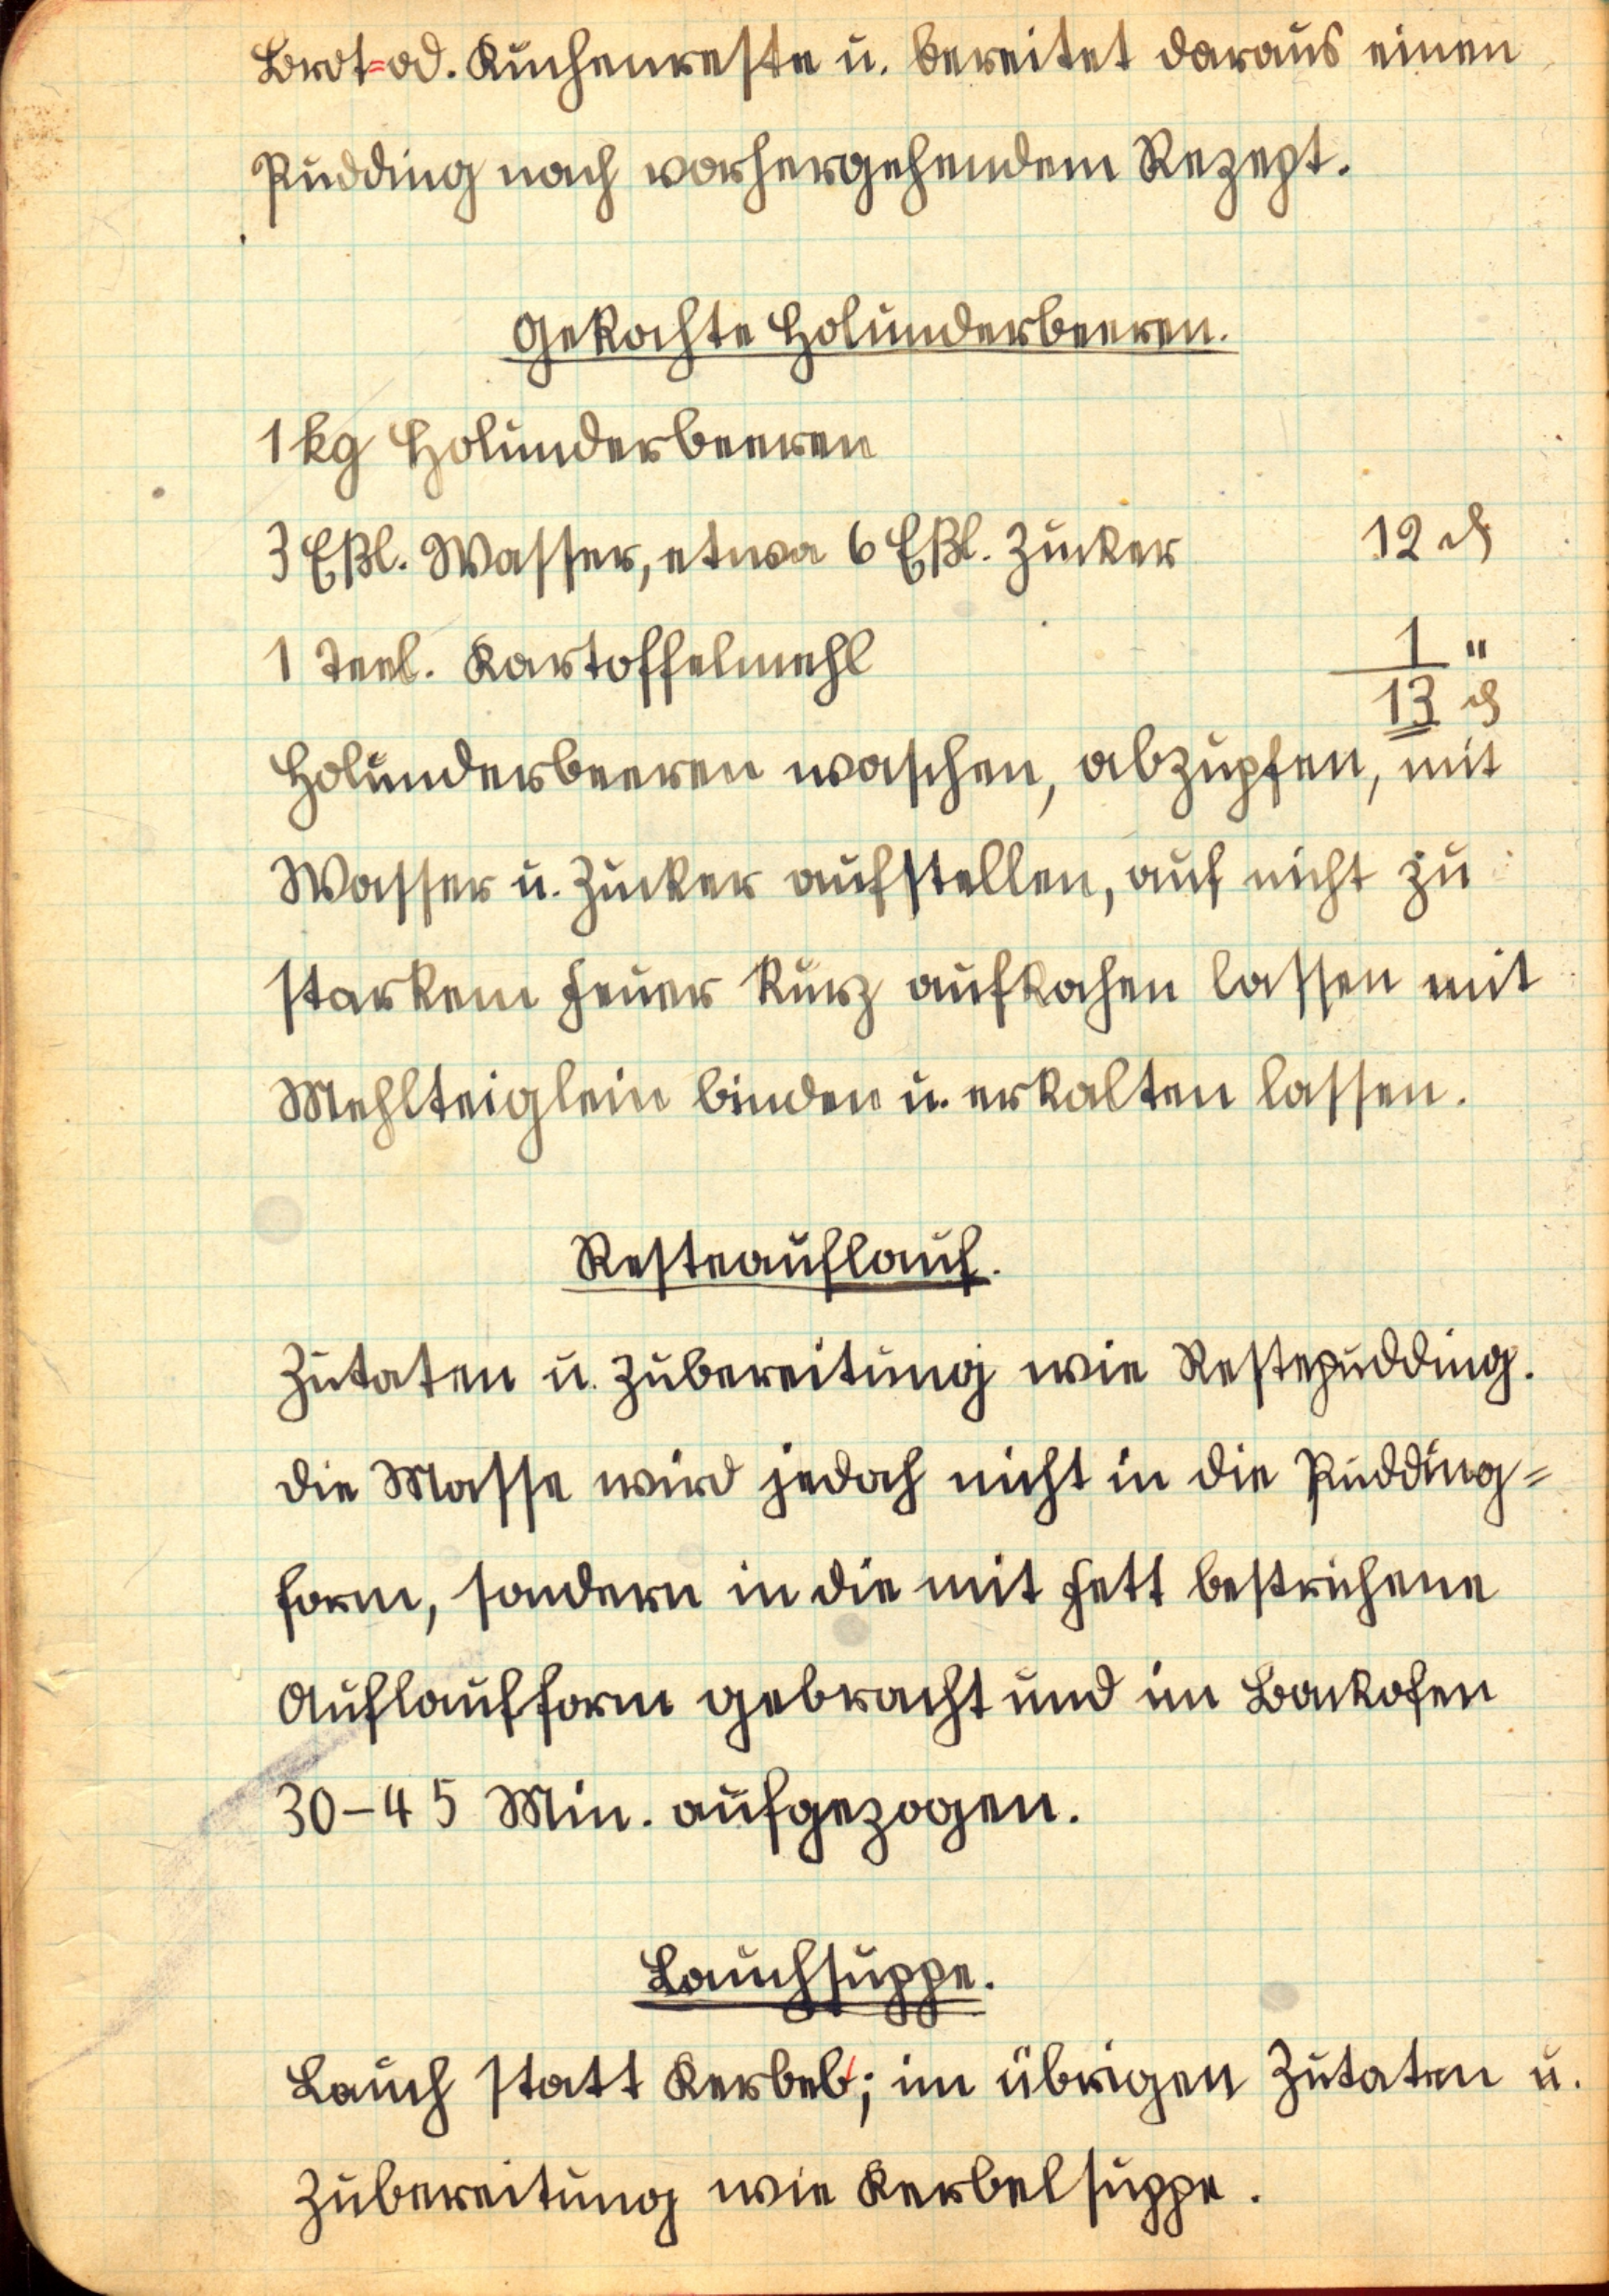 Brot=od. Kuchenreste u. bereitet daraus einen
Pudding nach vorhergehendem Rezept.
Gekochte Holunderbeeren.
1 kg Holunderbeeren
3 Eßl. Wasser, etwa 6 Eßl. Zucker 12 ₰
1 Teel. Kartoffelmehl 1 "
13 ₰
Holunderbeeren waschen, abzupfen, mit
Wasser u. Zucker aufstellen, auf nicht zu
starkem Feuer kurz aufkochen lassen mit
Mehlteiglein binden u. erkalten lassen.
Resteauflauf.
Zutaten u. Zubereitung wie Restepudding.
die Masse wird jedoch nicht in die Pudding=
form, sondern in die mit Fett bestrichene
Auflaufform gebracht und im Backofen
30-45 Min. aufgezogen.
Lauchsuppe.
Lauch statt Kerbel; im übrigen Zutaten u.
Zubereitung wie Kerbelsuppe.